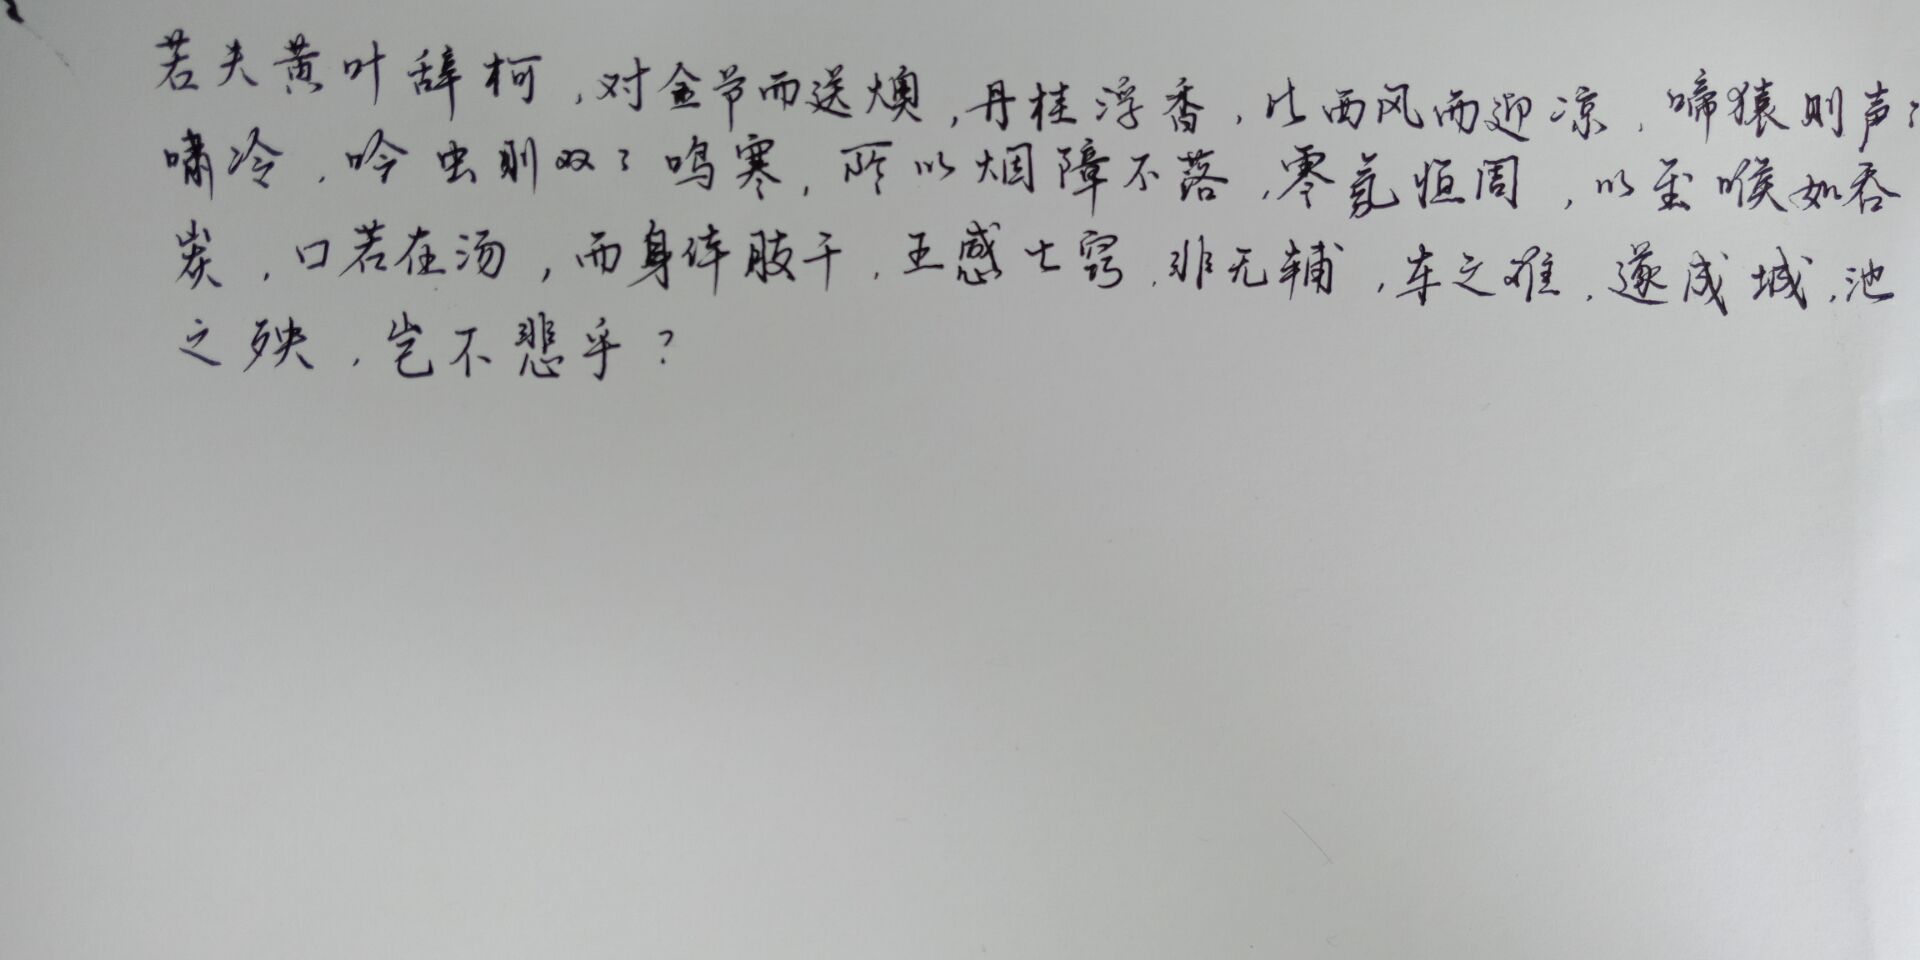 若夫黄叶辞柯,对金节而送燠,丹桂浮香,比西风而迎凉,啼猿则声
啸冷,吟虫则双了鸣寒,所以烟障不落,零氛恒周,以至喉如吞
炭,口若在汤,而身体肢干,五感七窍,非无辅,车之难,遂成城,池
之殃,岂不悲乎?